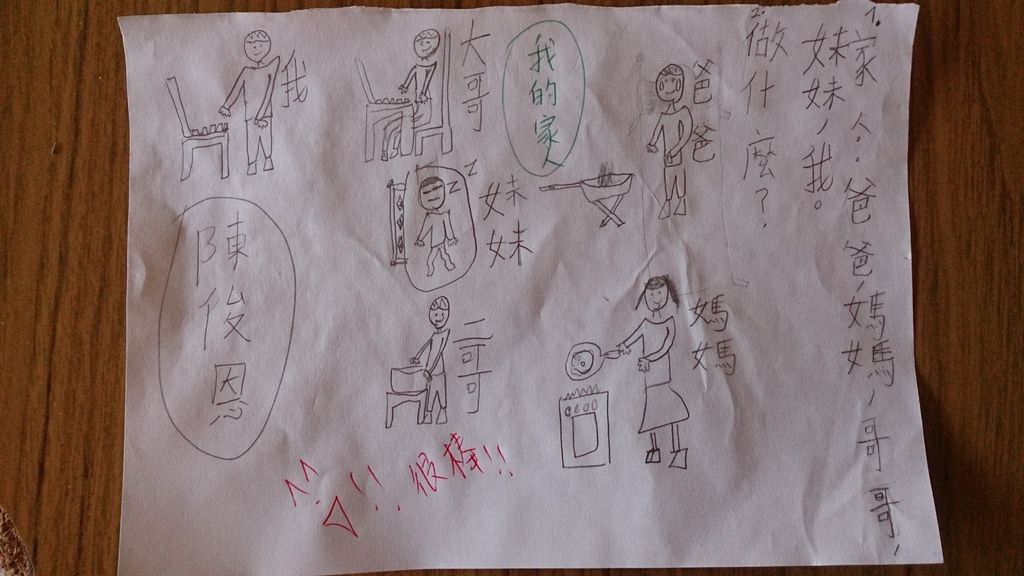 1. 家人:爸爸,媽媽,哥哥,
妹妹,我。
2. 做什麼?
爸爸
媽媽
我的家人
大哥
妹妹
zz
二哥
我
陳俊恩
很棒!!